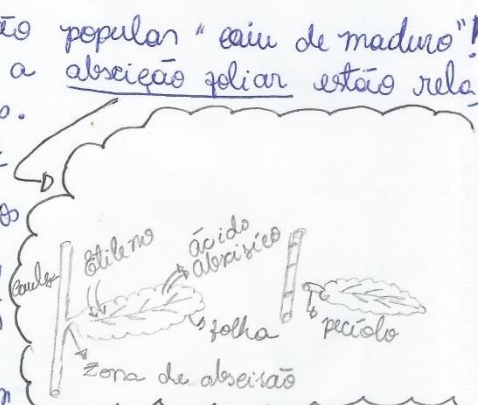 ão popular "caiu de maduro"!
a abscição foliar estão rela
o.
os
Etileno
ácido
abscisico
Caule
folha
pecíolo
zona de abscisão